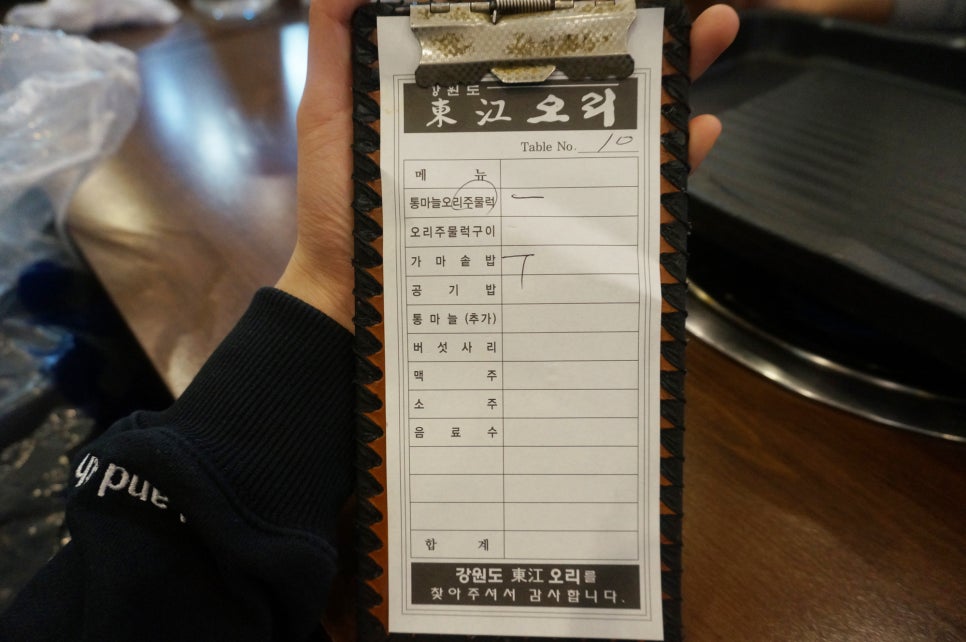 강원도
東江 오리
Table No. 10
메 뉴
통마늘오리주물럭 一
오리주물럭구이
가 마 솥 밥 ㅜ
공 기 밥
통 마 늘 (추가)
버 섯 사 리
맥 주
소 주
음 료 수
합 계
강원도 東江 오리를
찾아주셔서 감사합니다.
and